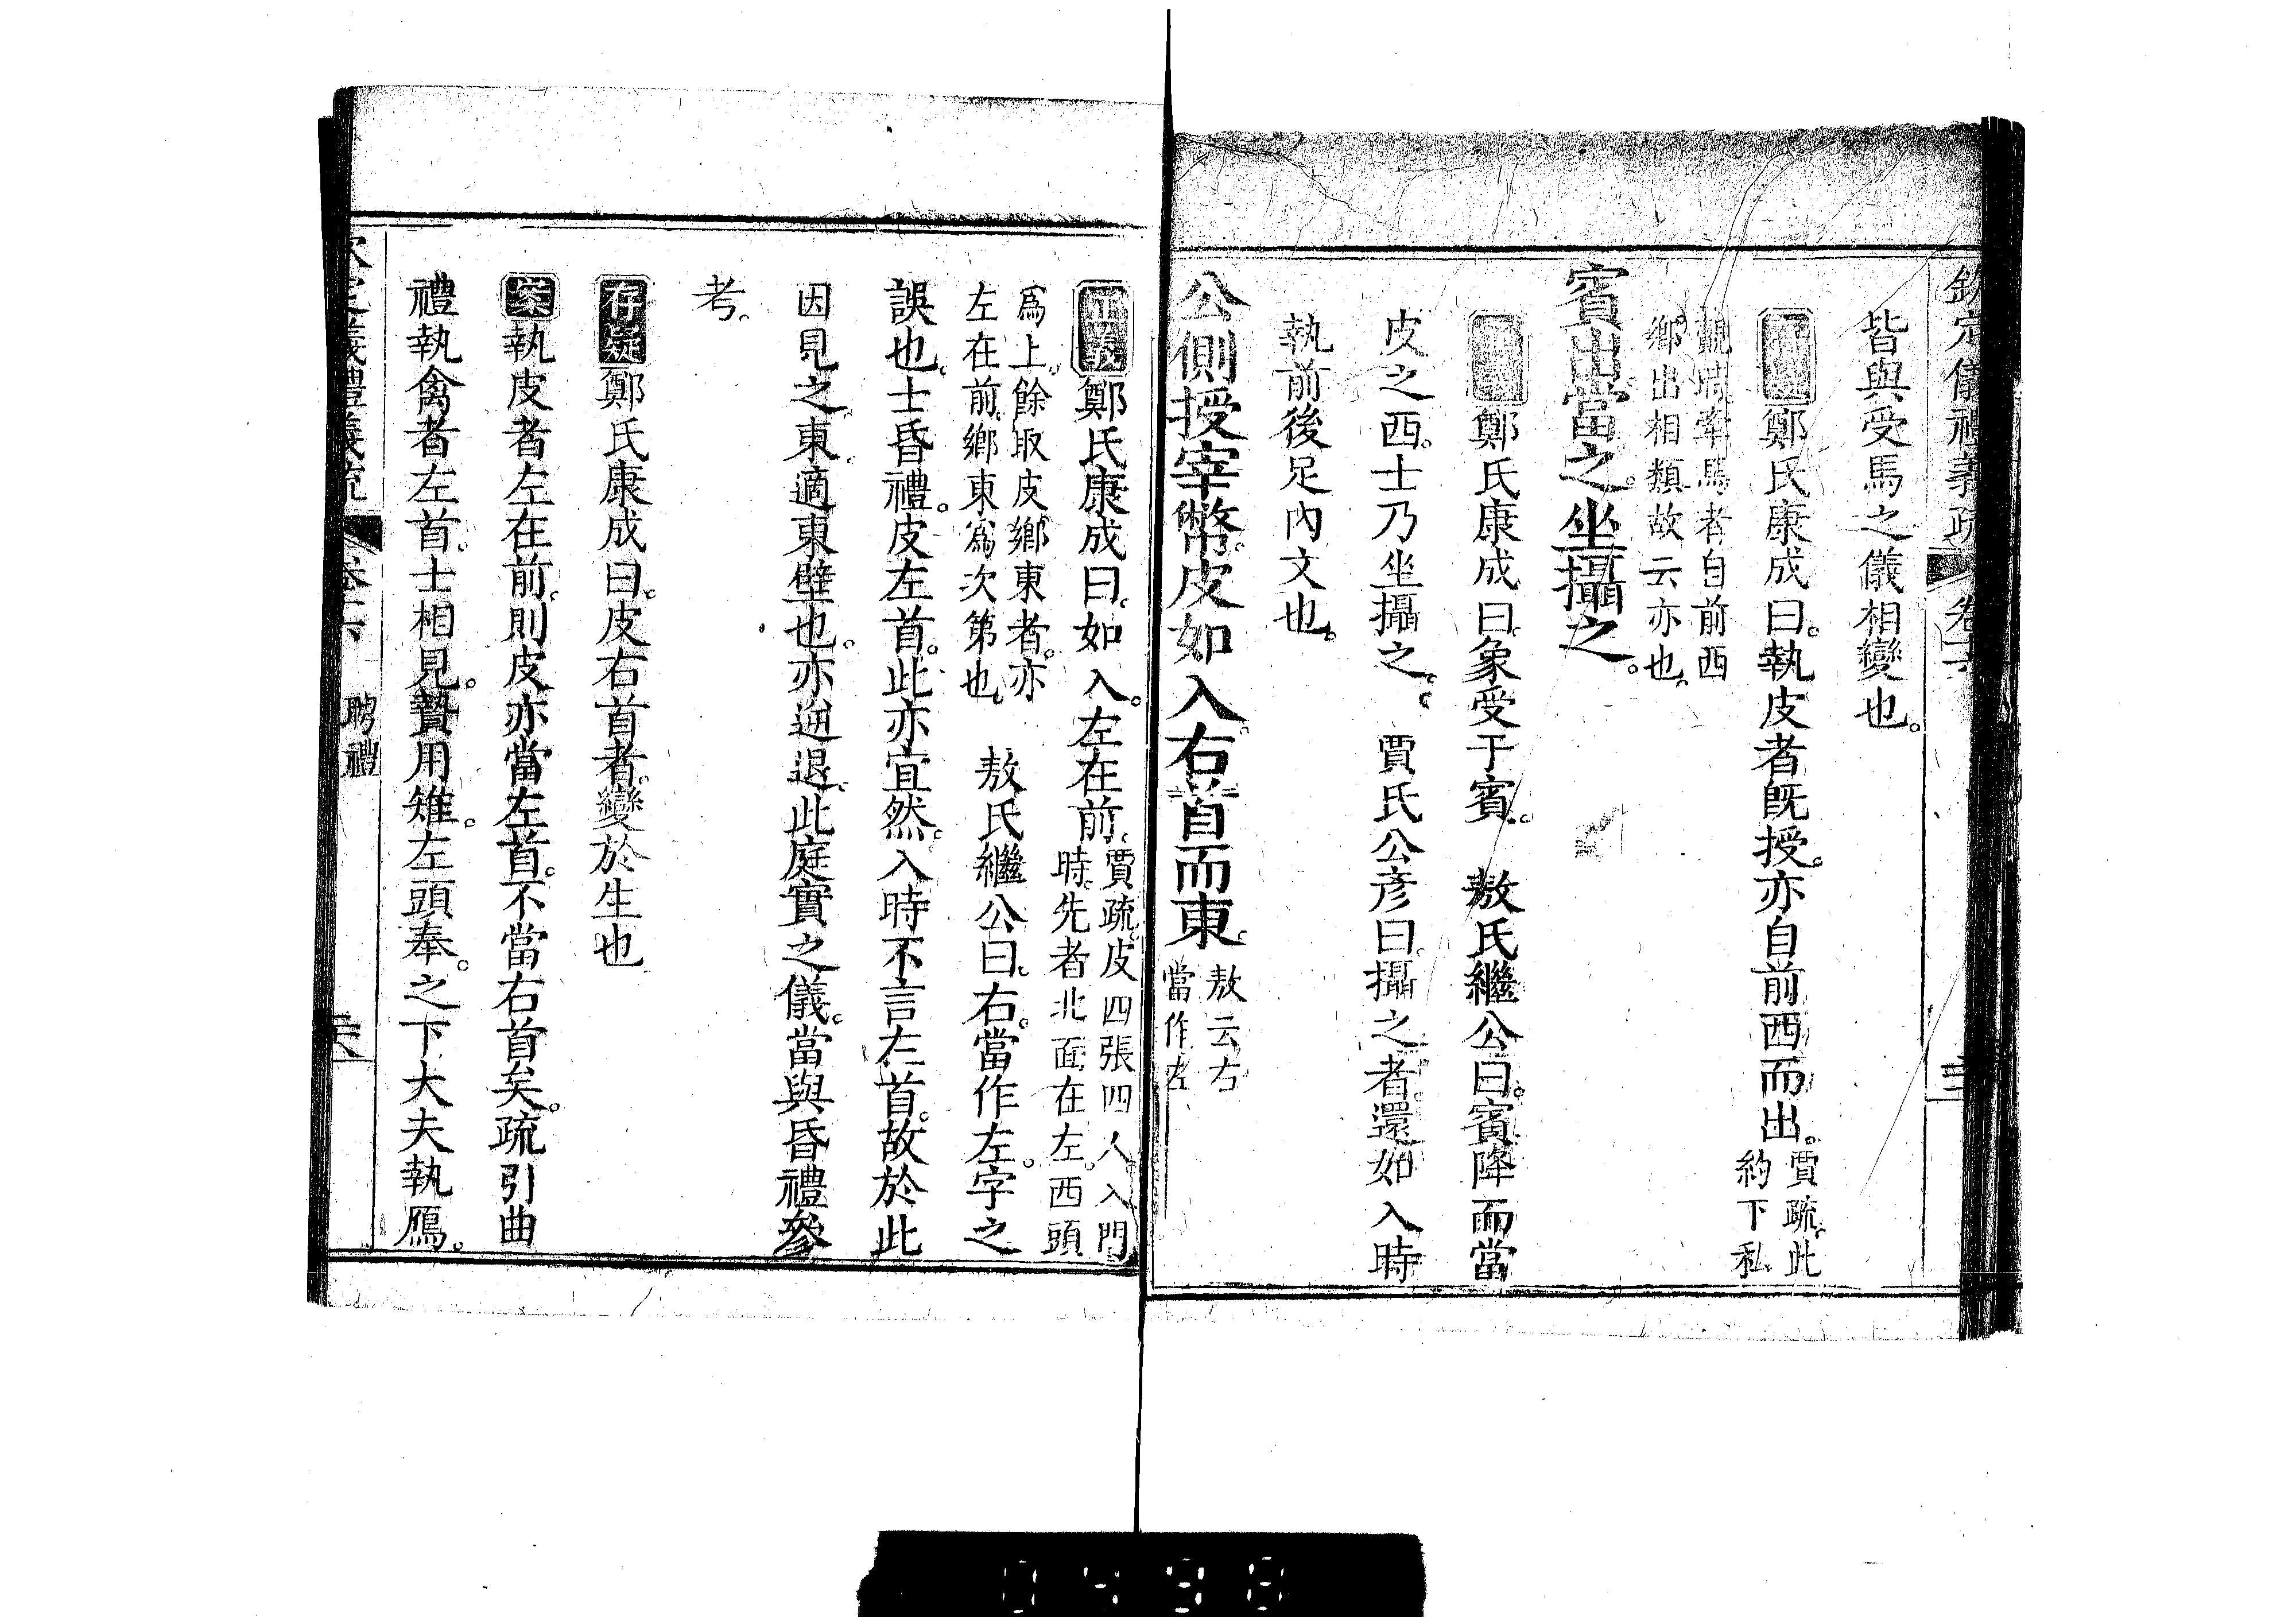 欽定儀禮義疏
卷十六
皆與受馬之儀相變也。
正義鄭氏康成曰。執皮者既授。亦自前西而出。賈疏。此約下私
覿時牽馬者自前西鄉出相類故云亦也。
賓出當之坐攝之。
正義鄭氏康成曰。象受于賓。 敖氏繼公曰。賓降而當
皮之西。士乃坐攝之。 賈氏公彥曰。攝之者。還如入時
執前後足內文也。
公側授宰幣。皮如入。右首而東。敖云右當作左
正義鄭氏康成曰。如入。左在前。賈疏。皮四張四人入門時。先者北面在左。西頭
為上。餘取皮鄉東者。亦左在前。鄉東為次第也。 敖氏繼公曰。右。當作左。字之
誤也。士昏禮。皮左首。此亦宜然。入時不言左首。故於此
因見之。東。適東壁也。亦逆退。此庭實之儀。當與昏禮參
考。
存疑鄭氏康成曰。皮右首者。變於生也
案執皮者左在前。則皮亦當左首。不當右首矣。疏引曲
禮執禽者左首。士相見。贄用雉。左頭奉。之下大夫執鴈。
聘禮